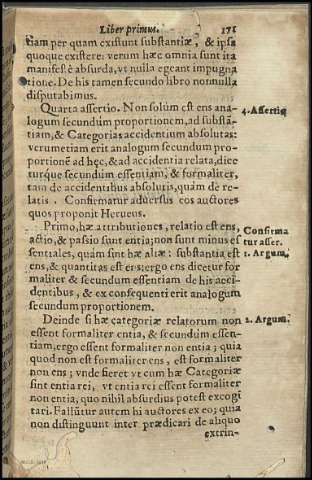 Liber primus. 171
tiam per quam existunt substantiæ, & ipsa
quoque existere: verum hæc omnia sunt ita
manifestè absurda, vt nulla egeant impugna
tione. De his tamen secundo libro nonnulla
disputabimus.
Quarta assertio. Non solùm est ens ana-
logum secundùm proportionem, ad substã-
tiam, & Categorias accidentium absolutas:
verumetiam erit analogum secundum pro-
portionẽ ad hęc, & ad accidentia relata, dice
turque secundùm essentiam, & formaliter,
tam de accidentibus absolutis, quàm de re-
latis. Confirmatur aduersus eos auctores
quos proponit Herueus.
4. Assertio
Primo, hæ attributiones, relatio est ens,
actio, & passio sunt entia; non sunt minus es
sentiales, quàm sint hæ aliæ: substantia est
ens, & quantitas est ens: ergo ens dicetur for
maliter & secundum essentiam de his acci-
dentibus, & ex consequenti erit analogum
secundum proportionem.
Confirma
tur asser.
1. Argum.
Deinde si hæ categoriæ relatorum non
essent formaliter entia, & secundùm essen-
tiam, ergo essent formaliter non entia; quia
quod non est formaliter ens, est formaliter
non ens; vnde fieret vt cum hæ Categoriæ
sint entia rei, vt entia rei essent formaliter
non entia, quo nihil absurdius potest excogi
tari. Fallũtur autem hi auctores ex eo; quia
non distinguunt inter prædicari de aliquo
extrin-
2. Argum.